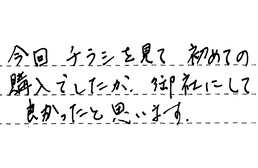 今回 チラシを見て 初めての
購入でしたが、御社にして
良かったと思います.